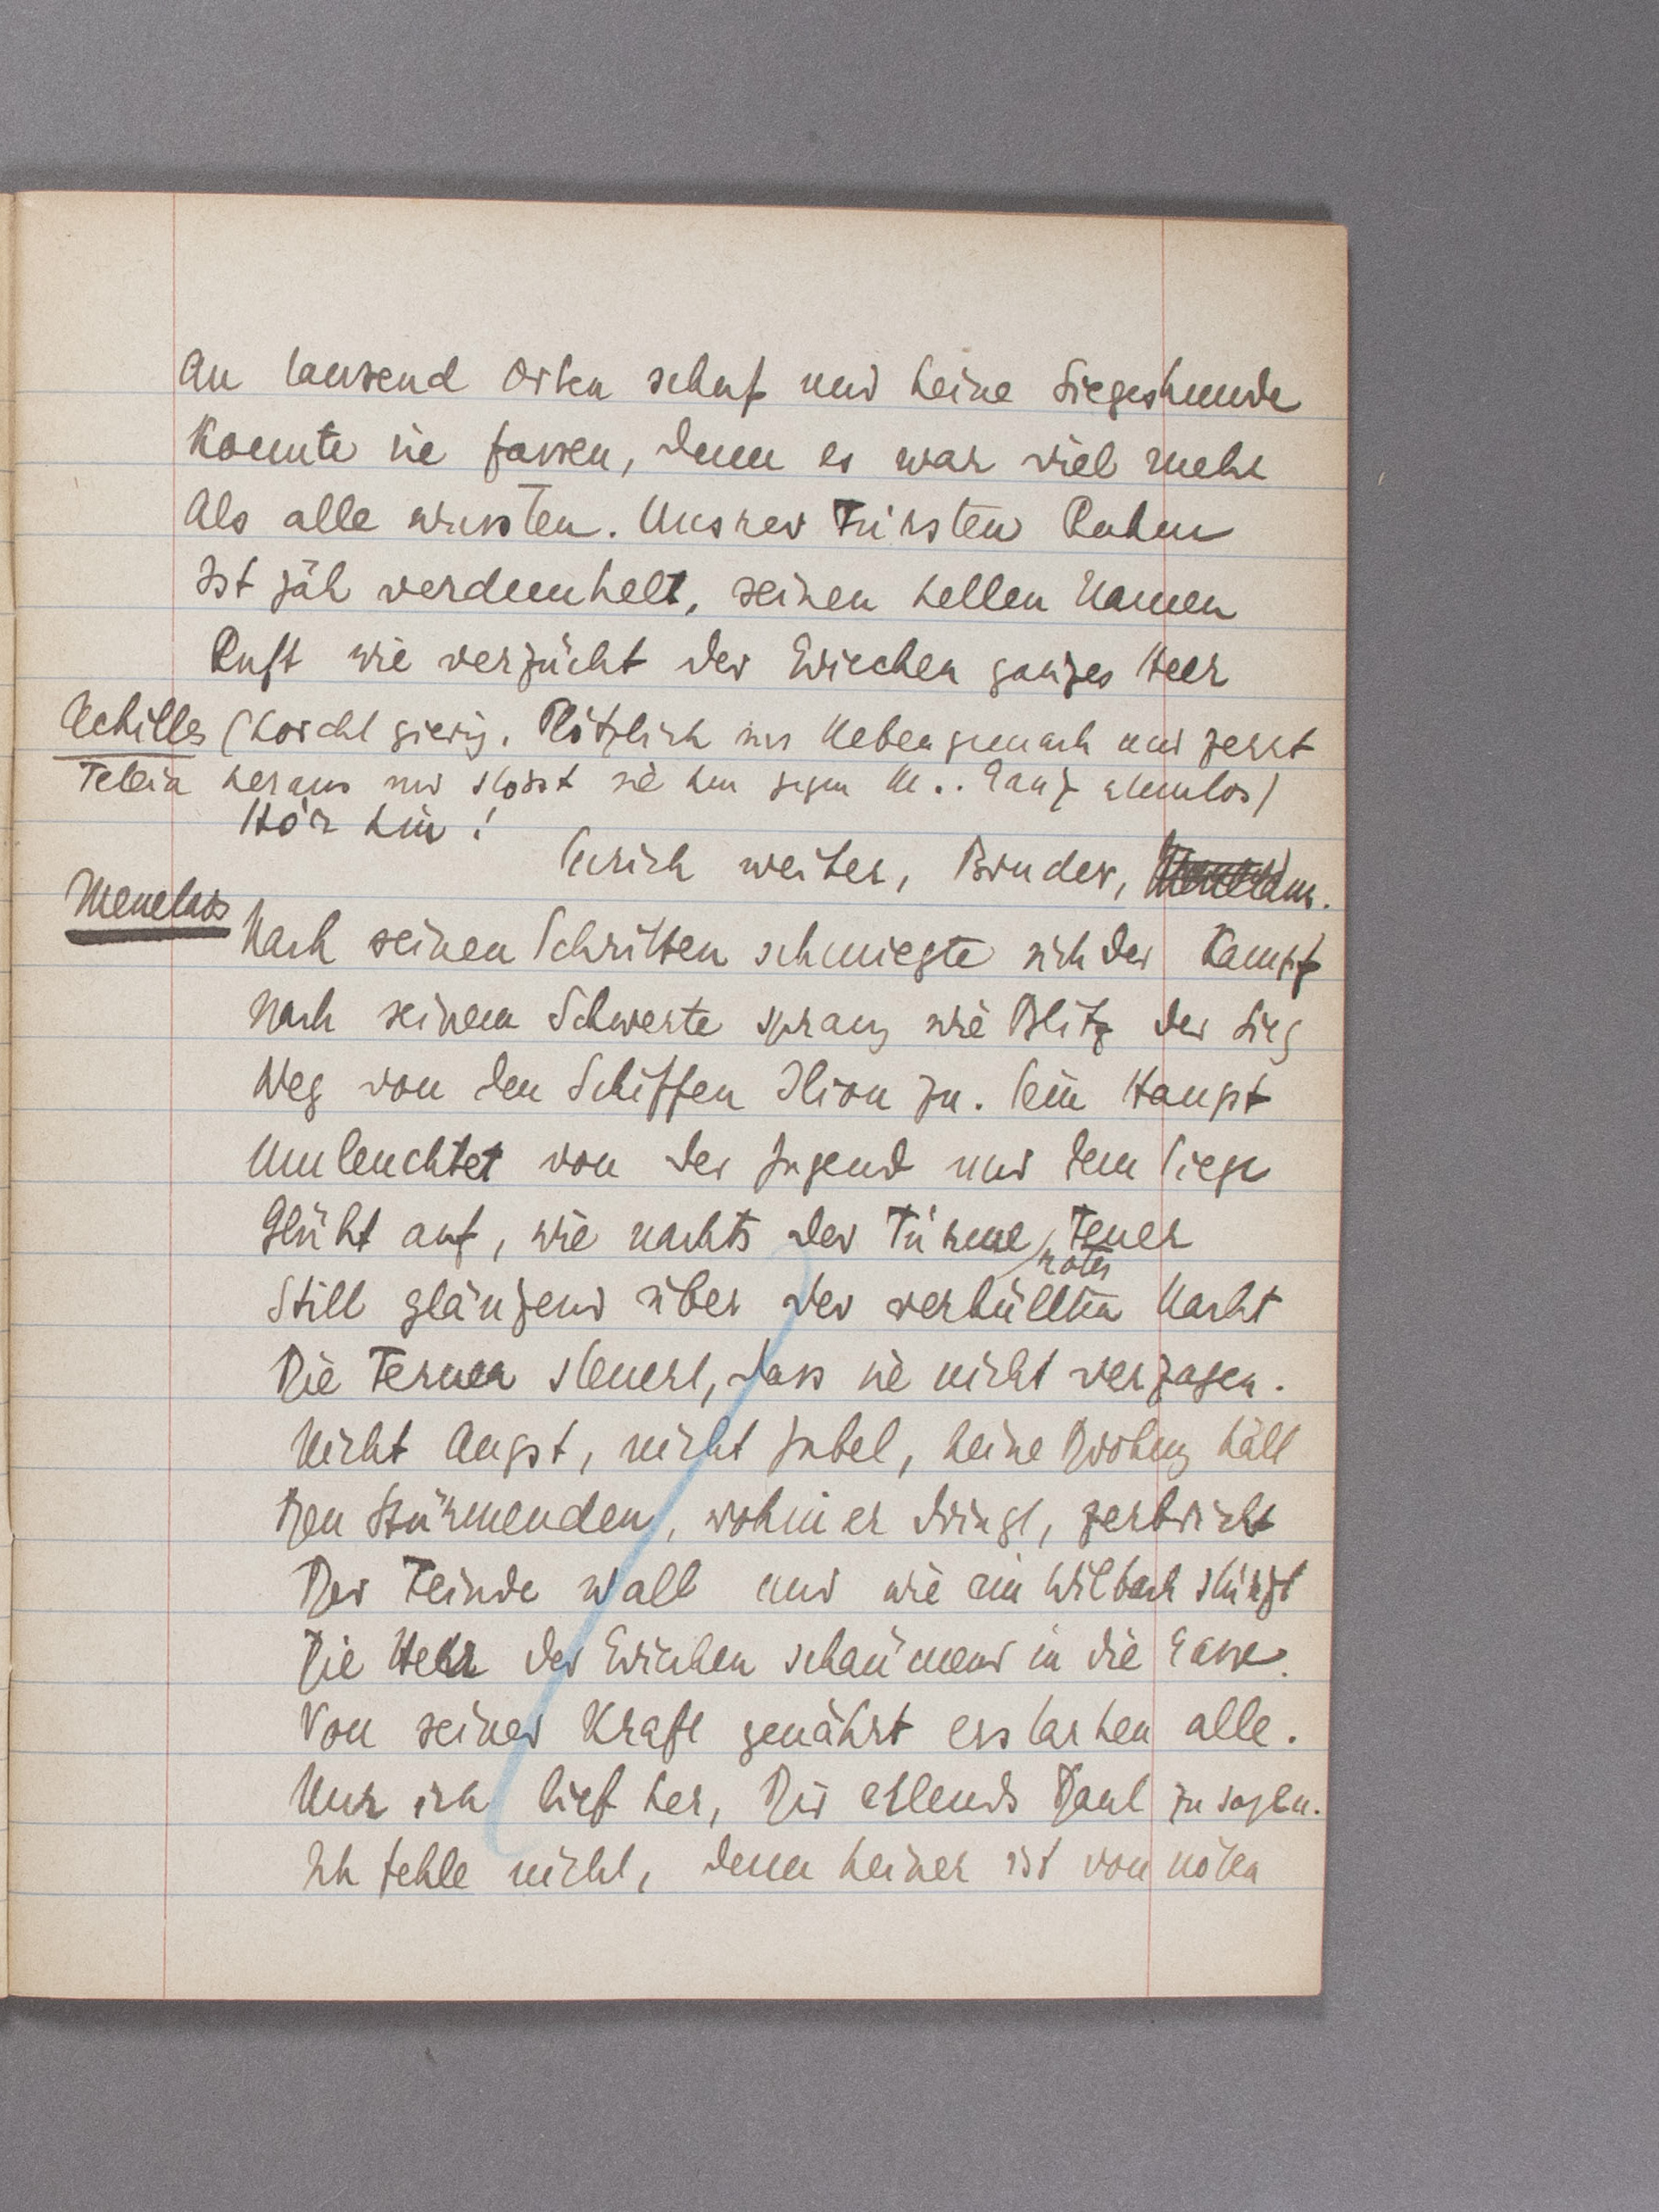 An tausend Orten schuf und keine Siegeskunde
Konnte sie fassen, denn es war viel mehr
Als alle wussten. Unsrer Fürsten Ruhm
Ist jäh verdunkelt, seinen hellen Namen
Ruft wie verzückt der Griechen ganzes Heer
Achilles (horcht gierig. Plötzlich ins Nebengemach und zerrt
Teleia heraus und stösst sie hin gegen M.. Ganz atemlos)
Hör hin!
Sprich weiter, Bruder, Menelaus.
Menelaos
Nach seinen Schritten schmiegte sich der Kampf
Nach seinem Schwerte sprang wie Blitz der Sieg
Weg von den Schiffen Ilion zu. Sein Haupt
Umleuchtet von der Jugend und dem Siege
Glüht auf, wie nachts der Türme Feuer
rotes
Still glänzend über der verhüllten Nacht
Die Fernen steuert, dass sie nicht verzagen.
Nicht Angst, nicht Jubel, keine Drohung hält
Den Stürmenden, wohin er dringt, zerbricht
Der Feinde Wall und wie ein Wilbach stürzt
Die Heer der Griechen schäumend in die Gasse.
Von seiner Kraft genährt erstarken alle.
Nur ich lief her, Dir eilends Dank zu sagen.
Ich fehle nicht, denn keiner ist von nöten